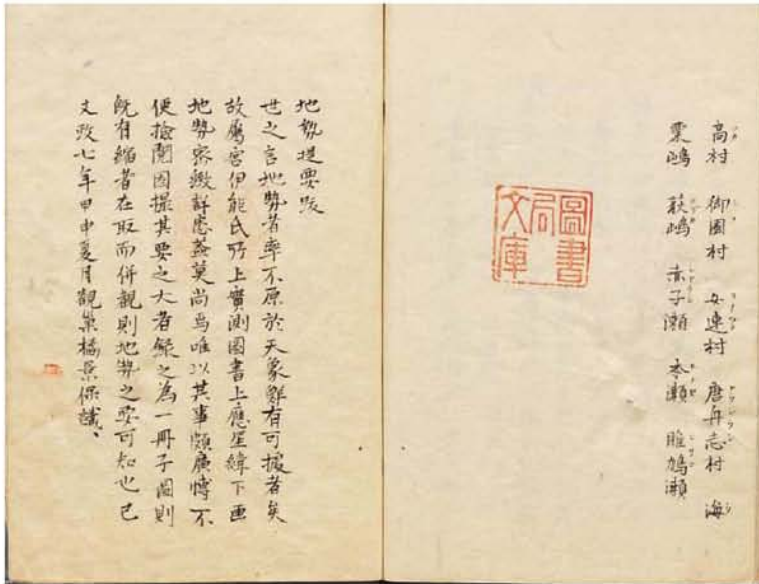 高村 御園村 女連村 唐舟志村 海
栗嶋 萩嶋 赤子瀬 瀬 雎鳩瀬
圖書
局
文庫
地勢提要跋
世之言地勢者率不原於天象鮮有可據者矣
故属官伊能氏所上實測圖書上應星緯下画
地勢密緻詳悉蓋莫尚焉唯以其事頗廣博不
便撿閲因撮其要之大者録之為一冊子圖則
既有縮者在取而併観則地勢之要可知也已
文政七年甲申夏月觀巣橘景保識、